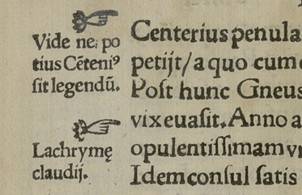 Vide ne, po
tius Cēteniꝰ
sit legendū.
Lachrymę
claudij.
Centerius penula
petijt/a quo cum
Post hunc Gneus
vix euasit. Anno a
opulentissimam vr
Idem consul satis